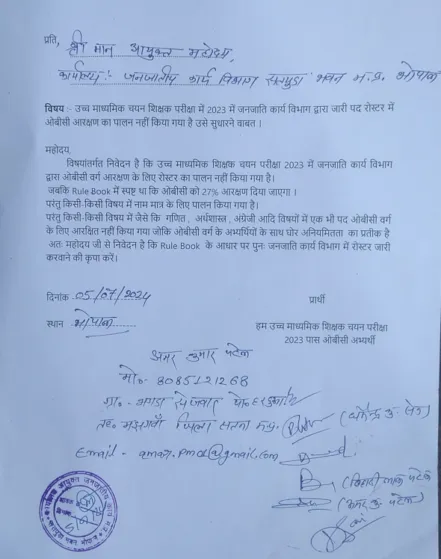 प्रति,
श्री मान आयुक्त महोदय,
कार्यालय:- जनजातीय कार्य विभाग सतपुड़ा भवन म.प्र. भोपाल
विषय :- उच्च माध्यमिक चयन शिक्षक परीक्षा में 2023 में जनजाति कार्य विभाग द्वारा जारी पद रोस्टर में
ओबीसी आरक्षण का पालन नहीं किया गया है उसे सुधारने वाबत ।
महोदय,
विषयांतर्गत निवेदन है कि उच्च माध्यमिक शिक्षक चयन परीक्षा 2023 में जनजाति कार्य विभाग
द्वारा ओबीसी वर्ग आरक्षण के लिए रोस्टर का पालन नहीं किया गया है।
जबकि Rule Book में स्पष्ट था कि ओबीसी को 27% आरक्षण दिया जाएगा ।
परंतु किसी-किसी विषय में नाम मात्र के लिए पालन किया गया है।
परंतु किसी-किसी विषय में जैसे कि गणित , अर्थशास्त्र, अंग्रेजी आदि विषयों में एक भी पद ओबीसी वर्ग
के लिए आरक्षित नहीं किया गया जोकि ओबीसी वर्ग के अभ्यर्थियों के साथ घोर अनियमितता का प्रतीक है
अतः महोदय जी से निवेदन है कि Rule Book के आधार पर पुनः जनजाति कार्य विभाग में रोस्टर जारी
करवाने की कृपा करें।
दिनांक 05/07/2024
प्रार्थी
स्थान भोपाल
हम उच्च माध्यमिक शिक्षक चयन परीक्षा
2023 पास ओबीसी अभ्यर्थी
अमर कुमार पटेल
मो०- 8085121268
ग्रा.-
जिला सतना म.प्र.
Email -